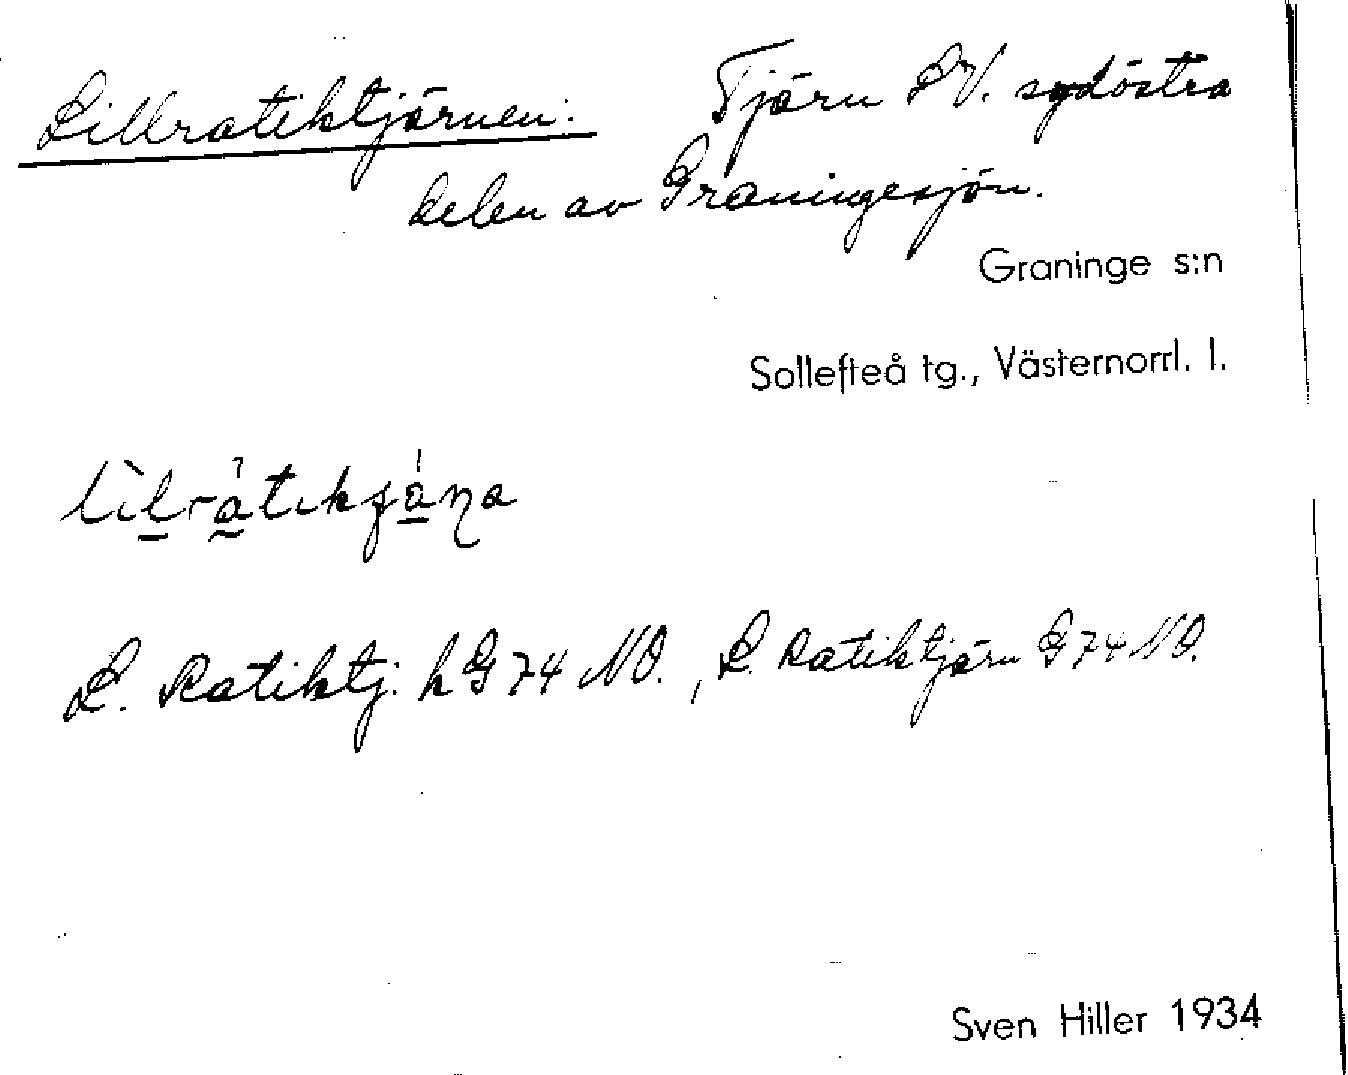 Lillratiktjärnen. Tjärn SV. sydöstra
delen av Graningesjön.
Graninge s:n
Sollefteå tg., Västernorrl. l.
L. Ratiktj. hG74 NO., L. Ratiktjärn G74 NO.
Sven Hiller 1934